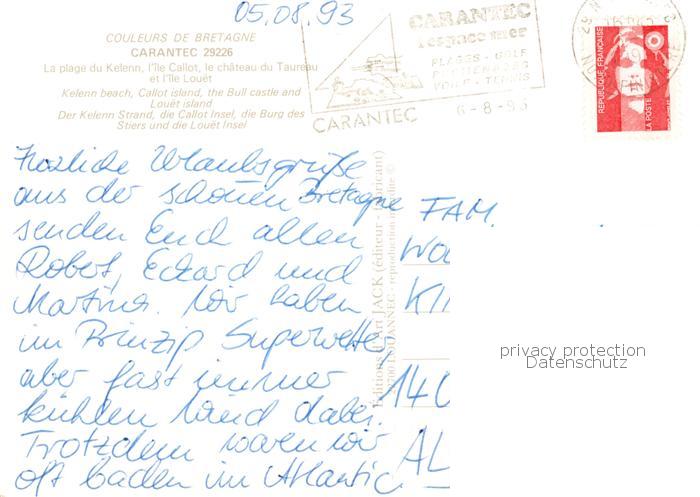 05.08.93
COULEURS DE BRETAGNE
CARANTEC 29226
La plage du Kelenn, l'île Callot, le château du Taureau
et l'île Louët
Kelenn beach, Callot island, the Bull castle and
Louët island
Der Kelenn Strand, die Callot Insel, die Burg des
Stiers und die Louët Insel
CARANTEC
l'espace mer
PLAGES - GOLF
VOILE - TENNIS
CARANTEC 6-8-93
REPUBLIQUE FRANÇAISE
LA POSTE
Herzliche Urlaubsgrüße
aus der schönen Bretagne
senden Euch allen
Robert, Eckard und
Martina. Wir haben
im Prinzip Superwetter,
aber fast immer
kühlen Wind dabei.
Trotzdem waren wir
oft baden im Atlantic
Editions d'Art JACK (éditeur - fabricant)
FAM.
WO
KI
140
AL
privacy protection
Datenschutz